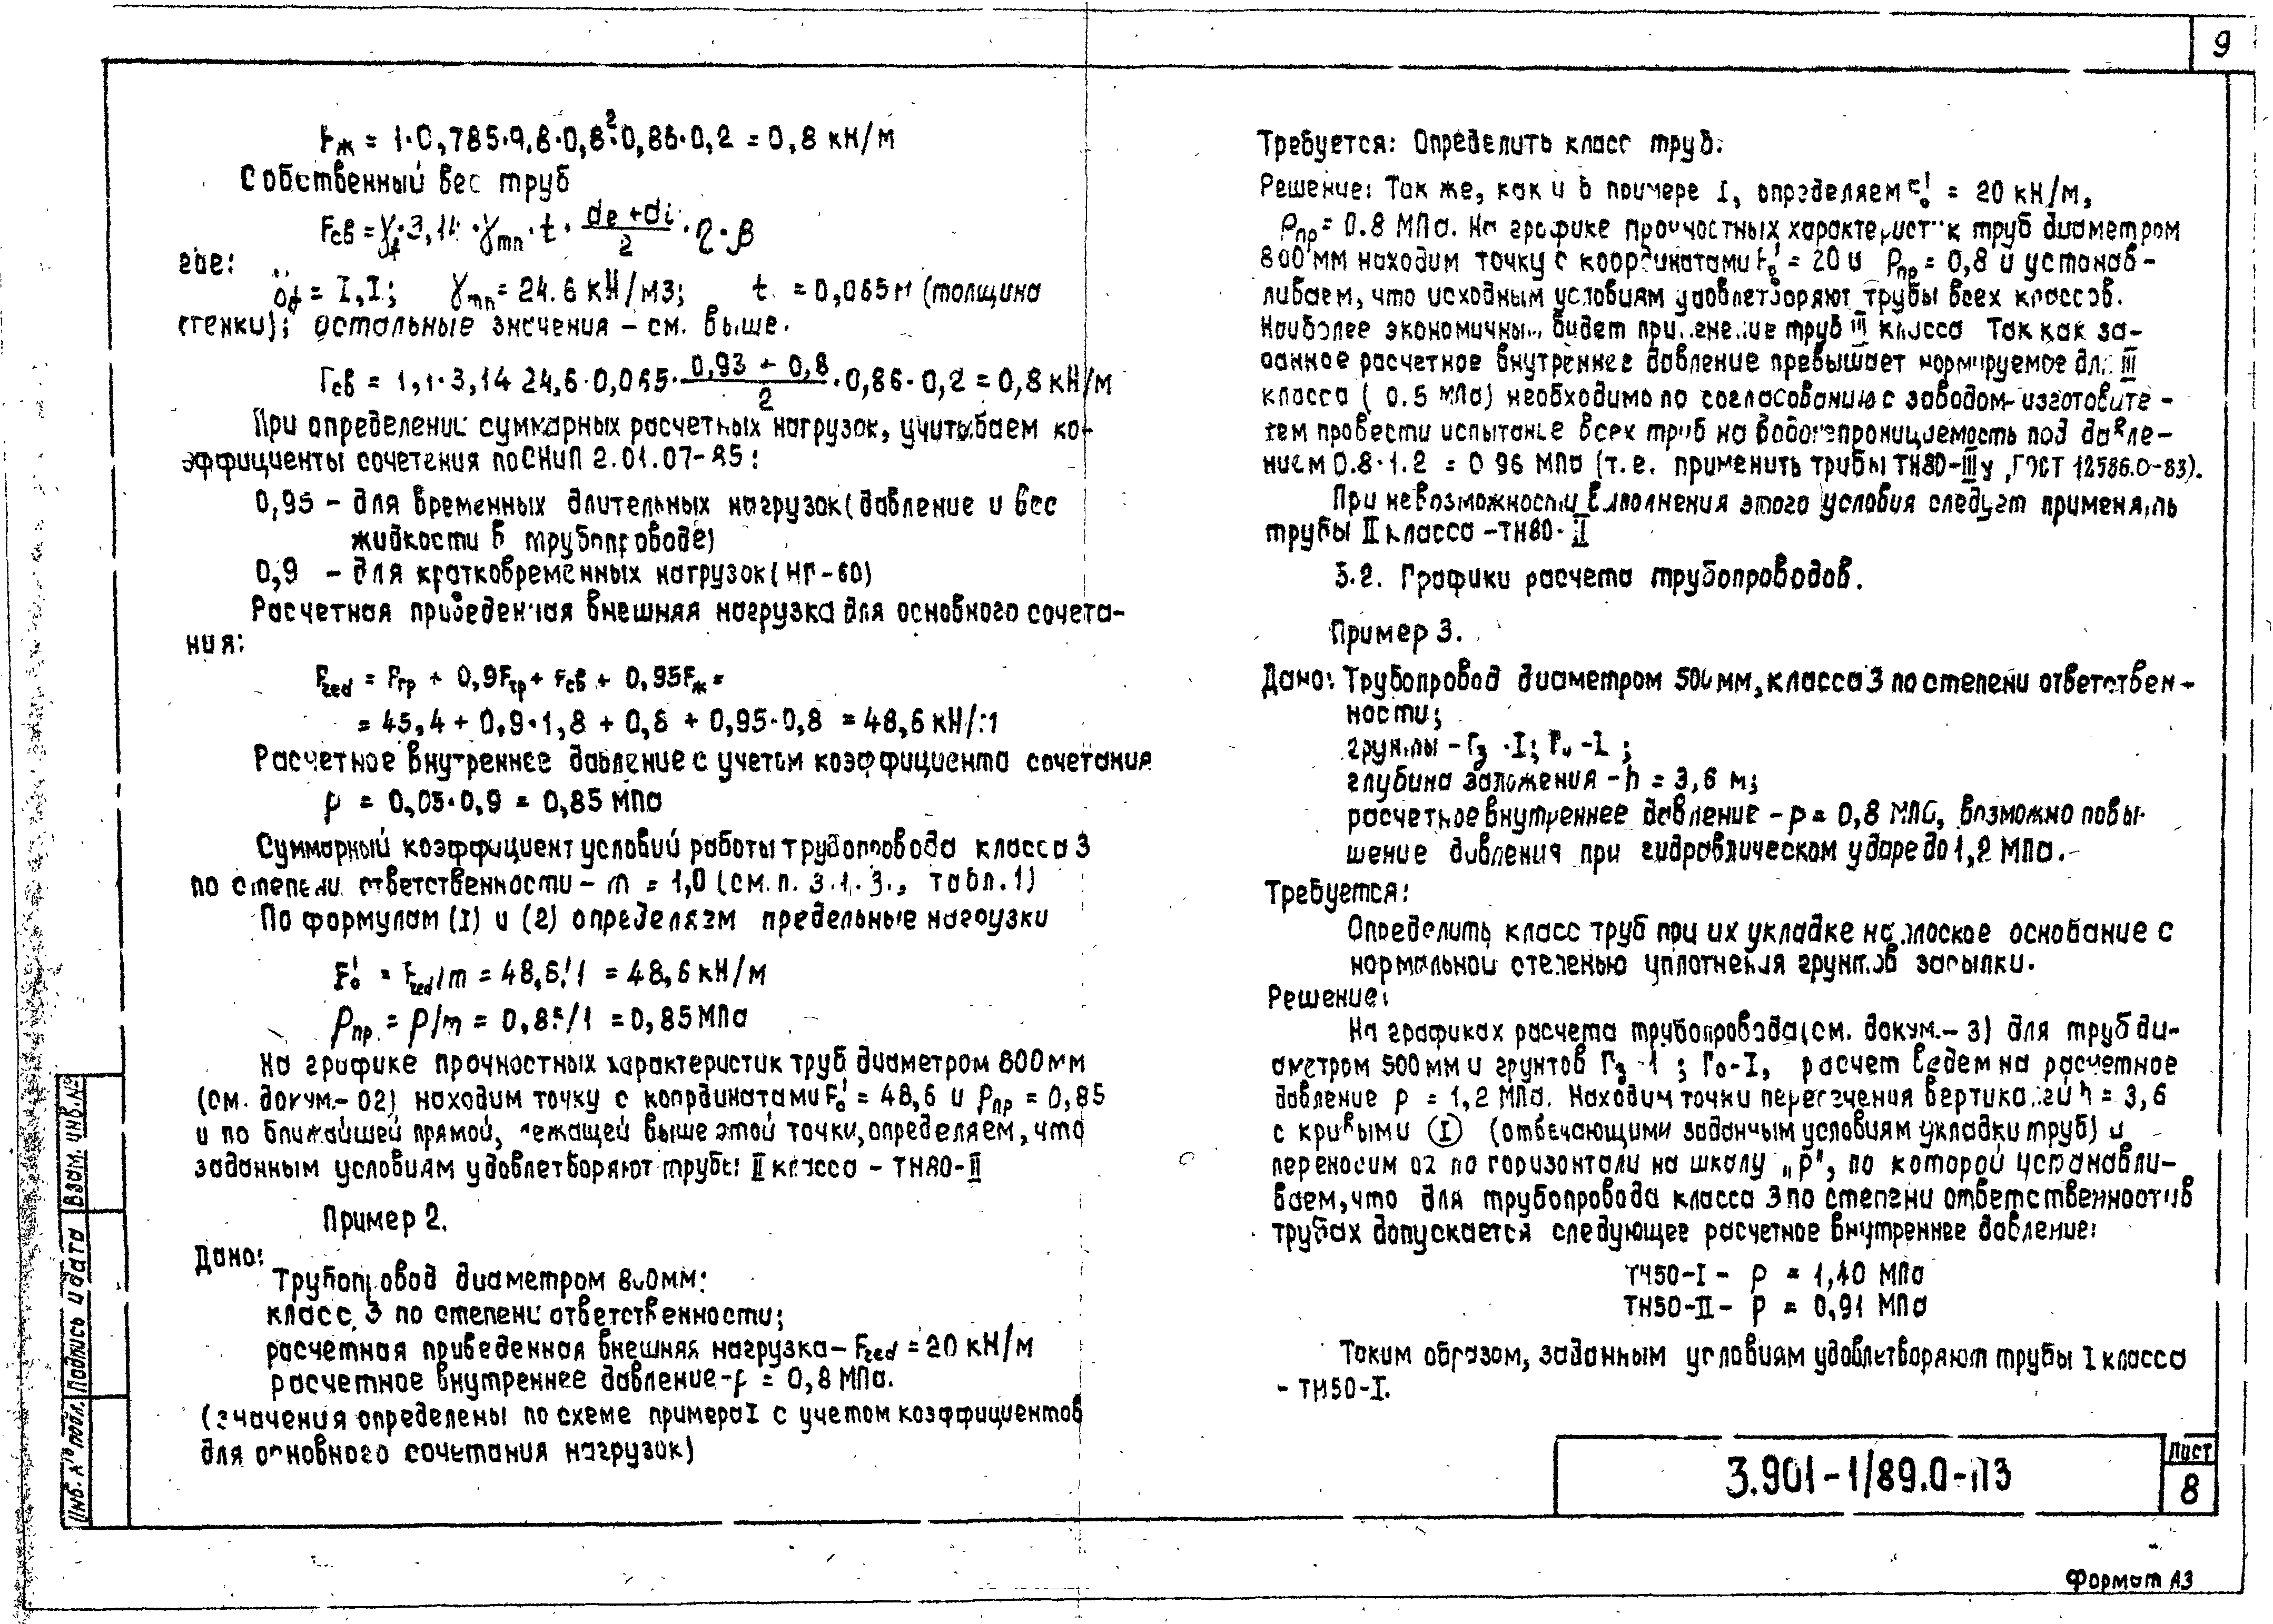 9
Fж = 1·0,785·9,8·0,8²·0,86·0,2 = 0,8 кН/м
Собственный вес труб
Fсв = γf·3,14·γmn·t·(de+di)/2·η·β
где:
γf = I,I; γmn = 24.6 кН/м3; t = 0,065м (толщина
стенки); остальные значения – см. выше.
Fсв = 1,1·3,14 24,6·0,065·(0,93 + 0,8)/2·0,86·0,2 = 0,8 кН/м
При определении суммарных расчетных нагрузок, учитываем ко-
эффициенты сочетения по СНиП 2.01.07-85:
0,95 – для временных длительных нагрузок (давление и вес
жидкости в трубопроводе)
0,9 – для кратковременных нагрузок (НГ-60)
Расчетная приведенная внешняя нагрузка для основного сочета-
ния:
Fred = Fгр + 0,9Fтр + Fсв + 0,95Fж =
= 45,4 + 0,9·1,8 + 0,8 + 0,95·0,8 = 48,6 кН/м
Расчетное внутреннее давление с учетом коэффициента сочетания
p = 0,95·0,9 = 0,85 МПа
Суммарный коэффициент условий работы трубопровода класса 3
по степени ответственности – m = 1,0 (см. п. 3.1.3., табл. 1)
По формулам (I) и (2) определяем предельные нагрузки
F₀' = Fred/m = 48,6/1 = 48,6 кН/м
Pпр = P/m = 0,85/1 = 0,85 МПа
На графике прочностных характеристик труб диаметром 800 мм
(см. докум.– 02) находим точку с координатами F₀' = 48,6 и Pпр = 0,85
и по ближайшей прямой, лежащей выше этой точки, определяем, что
заданным условиям удовлетворяют трубы II класса – ТН80-II
Пример 2.
Дано:
Трубопровод диаметром 800мм:
класс 3 по степени ответственности;
расчетная приведенная внешняя нагрузка – Fred = 20 кН/м
расчетное внутреннее давление – p = 0,8 МПа.
(значения определены по схеме примера I с учетом коэффициентов
для основного сочетания нагрузок)
Требуется: Определить класс труб.
Решение: Так же, как и в примере I, определяем F₀' = 20 кН/м,
Pпр = 0.8 МПа. На графике прочностных характеристик труб диаметром
800 мм находим точку с координатами F₀' = 20 и Pпр = 0,8 и устанав-
ливаем, что исходным условиям удовлетворяют трубы всех классов.
Наиболее экономичным будет применение труб III класса Так как за-
данное расчетное внутреннее давление превышает нормируемое для III
класса ( 0.5 МПа) необходимо по согласованию с заводом-изготовите-
лем провести испытание всех труб на водонепроницаемость под давле-
нием 0.8·1.2 = 0 96 МПа (т.е. применить трубы ТН80-IIIу, ГОСТ 12586.0-83).
При невозможности выполнения этого условия следует применять
трубы II класса – ТН80-II
3.2. Графики расчета трубопроводов.
Пример 3.
Дано: Трубопровод диаметром 500 мм, класса 3 по степени ответствен-
ности;
грунты – Гз-I; Го-I;
глубина заложения – h = 3,6 м;
расчетное внутреннее давление – p = 0,8 МПа, возможно повы-
шение давления при гидравлическом ударе до 1,2 МПа.
Требуется:
Определить класс труб при их укладке на плоское основание с
нормальной степенью уплотнения грунтов засыпки.
Решение:
На графиках расчета трубопровода (см. докум.– 3) для труб ди-
аметром 500 мм и грунтов Гз-1 ; Го-I, расчет ведем на расчетное
давление p = 1,2 МПа. Находим точки пересечения вертикалей h = 3,6
с кривыми (I) (отвечающими заданным условиям укладки труб) и
переносим их по горизонтали на шкалу „p", по которой устанавли-
ваем, что для трубопровода класса 3 по степени ответственности в
трубах допускается следующее расчетное внутреннее давление:
ТН50-I – p = 1,40 МПа
ТН50-II – p = 0,91 МПа
Таким образом, заданным условиям удовлетворяют трубы I класса
– ТН50-I.
Инв. № подл. Подпись и дата Взам. инв. №
3.901-1/89.0-ПЗ
Лист
8
Формат А3